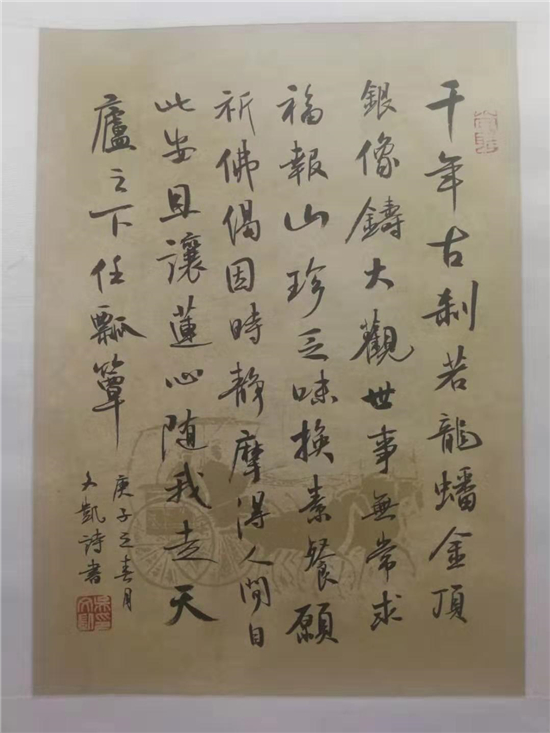 千年古刹若龍蟠金頂
銀像鑄大觀世事無常求
福報山珍乏味換素餐願
祈佛偈因時静摩得人間日
此安且讓蓮心随我走天
廬之下任瓢簞
庚子之春月
文凱詩書